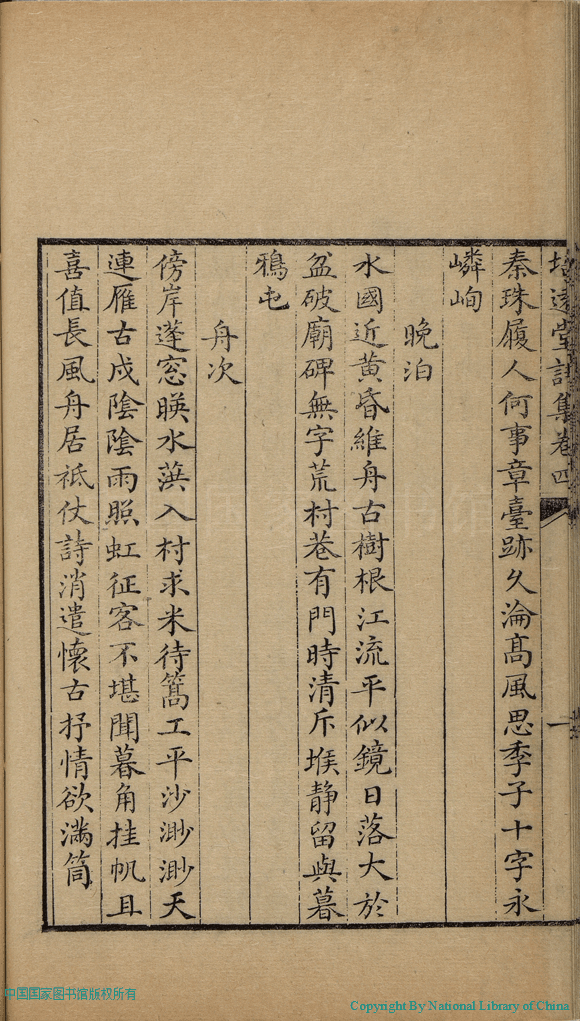 培遠堂詩集卷四
一
秦珠履人何事章臺跡久淪髙風思季子十字永
嶙峋
晚泊
水國近黄昏維舟古樹根江流平似鏡日落大於
盆破廟碑無字荒村巷有門時清斥堠静留與暮
鴉屯
舟次
傍岸蓬窓暎水葓入村求米待篙工平沙渺渺天
連雁古戍陰陰雨照虹征客不堪聞暮角挂帆且
喜值長風舟居祗仗詩消遣懷古抒情欲滿筒
中国国家图书馆版权所有
Copyright By National Library of China